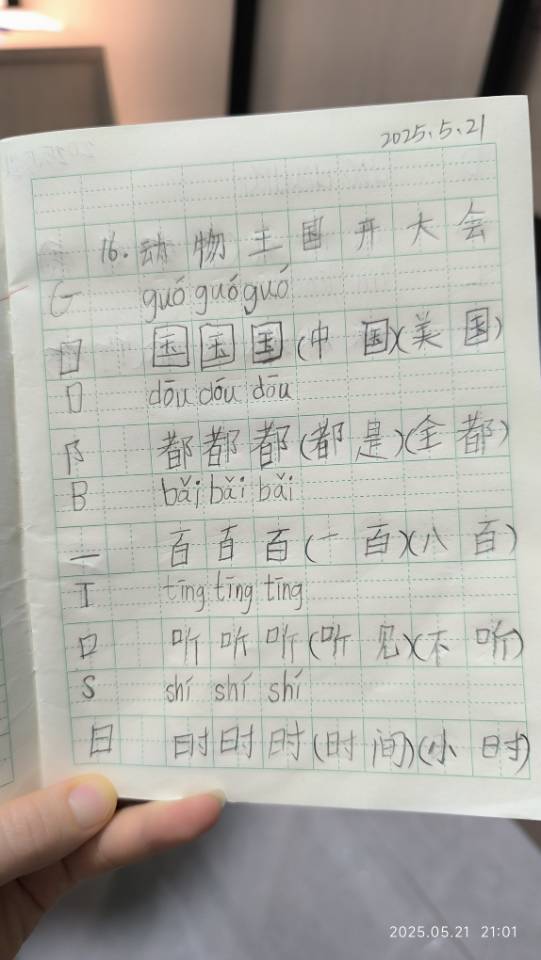 2025.5.21
16. 动物王国开大会
G guó guó guó
囗 国 国 国 (中国)(美国)
D dōu dōu dōu
阝 都 都 都 (都是)(全都)
B bǎi bǎi bǎi
一 百 百 百 (一百)(八百)
T tīng tīng tīng
口 听 听 听 (听见)(不听)
S shí shí shí
日 时 时 时 (时间)(小时)
2025.05.21 21:01